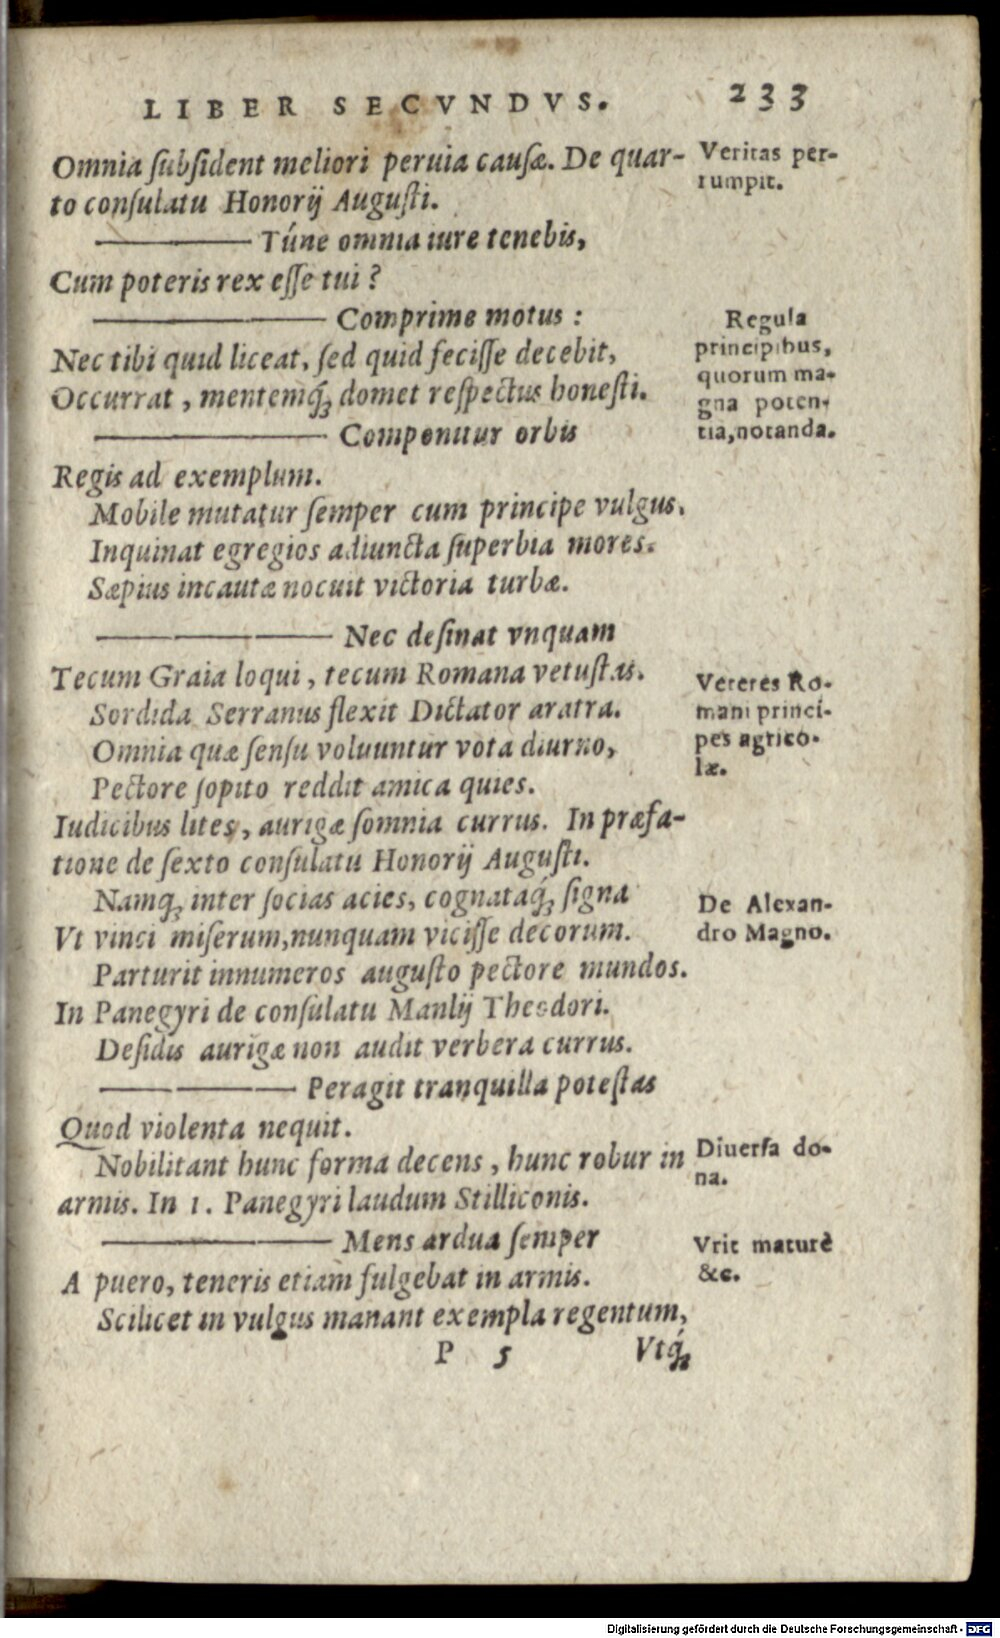 LIBER SECVNDVS. 233
Omnia ſubſident meliori peruia cauſæ. De quar-
to conſulatu Honorij Auguſti.
Veritas per-
rumpit.
——— Túnc omnia iure tenebis,
Cum poteris rex eſſe tui?
——— Comprime motus:
Nec tibi quid liceat, ſed quid feciſſe decebit,
Occurrat, mentemq́; domet reſpectus honeſti.
Regula
principibus,
quorum ma-
gna poten-
tia, notanda.
——— Componitur orbis
Regis ad exemplum.
Mobile mutatur ſemper cum principe vulgus.
Inquinat egregios adiuncta ſuperbia mores.
Sæpius incautæ nocuit victoria turbæ.
——— Nec deſinat vnquam
Tecum Graia loqui, tecum Romana vetuſtas.
Sordida Serranus flexit Dictator aratra.
Veteres Ro-
mani princi-
pes agrico-
læ.
Omnia quæ ſenſu voluuntur vota diurno,
Pectore ſopito reddit amica quies.
Iudicibus lites, aurigæ ſomnia currus. In præfa-
tione de ſexto conſulatu Honorij Auguſti.
Namq; inter ſocias acies, cognataq́; ſigna
Vt vinci miſerum, nunquam viciſſe decorum.
De Alexan-
dro Magno.
Parturit innumeros auguſto pectore mundos.
In Panegyri de conſulatu Manlij Theodori.
Deſidis aurigæ non audit verbera currus.
——— Peragit tranquilla poteſtas
Quod violenta nequit.
Nobilitant hunc forma decens, hunc robur in
armis. In 1. Panegyri laudum Stilliconis.
Diuerſa do-
na.
——— Mens ardua ſemper
A puero, teneris etiam fulgebat in armis.
Vrit maturè
&c.
Scilicet in vulgus manant exempla regentum,
P 5 Vtq́;
Digitalisierung gefördert durch die Deutsche Forschungsgemeinschaft - DFG